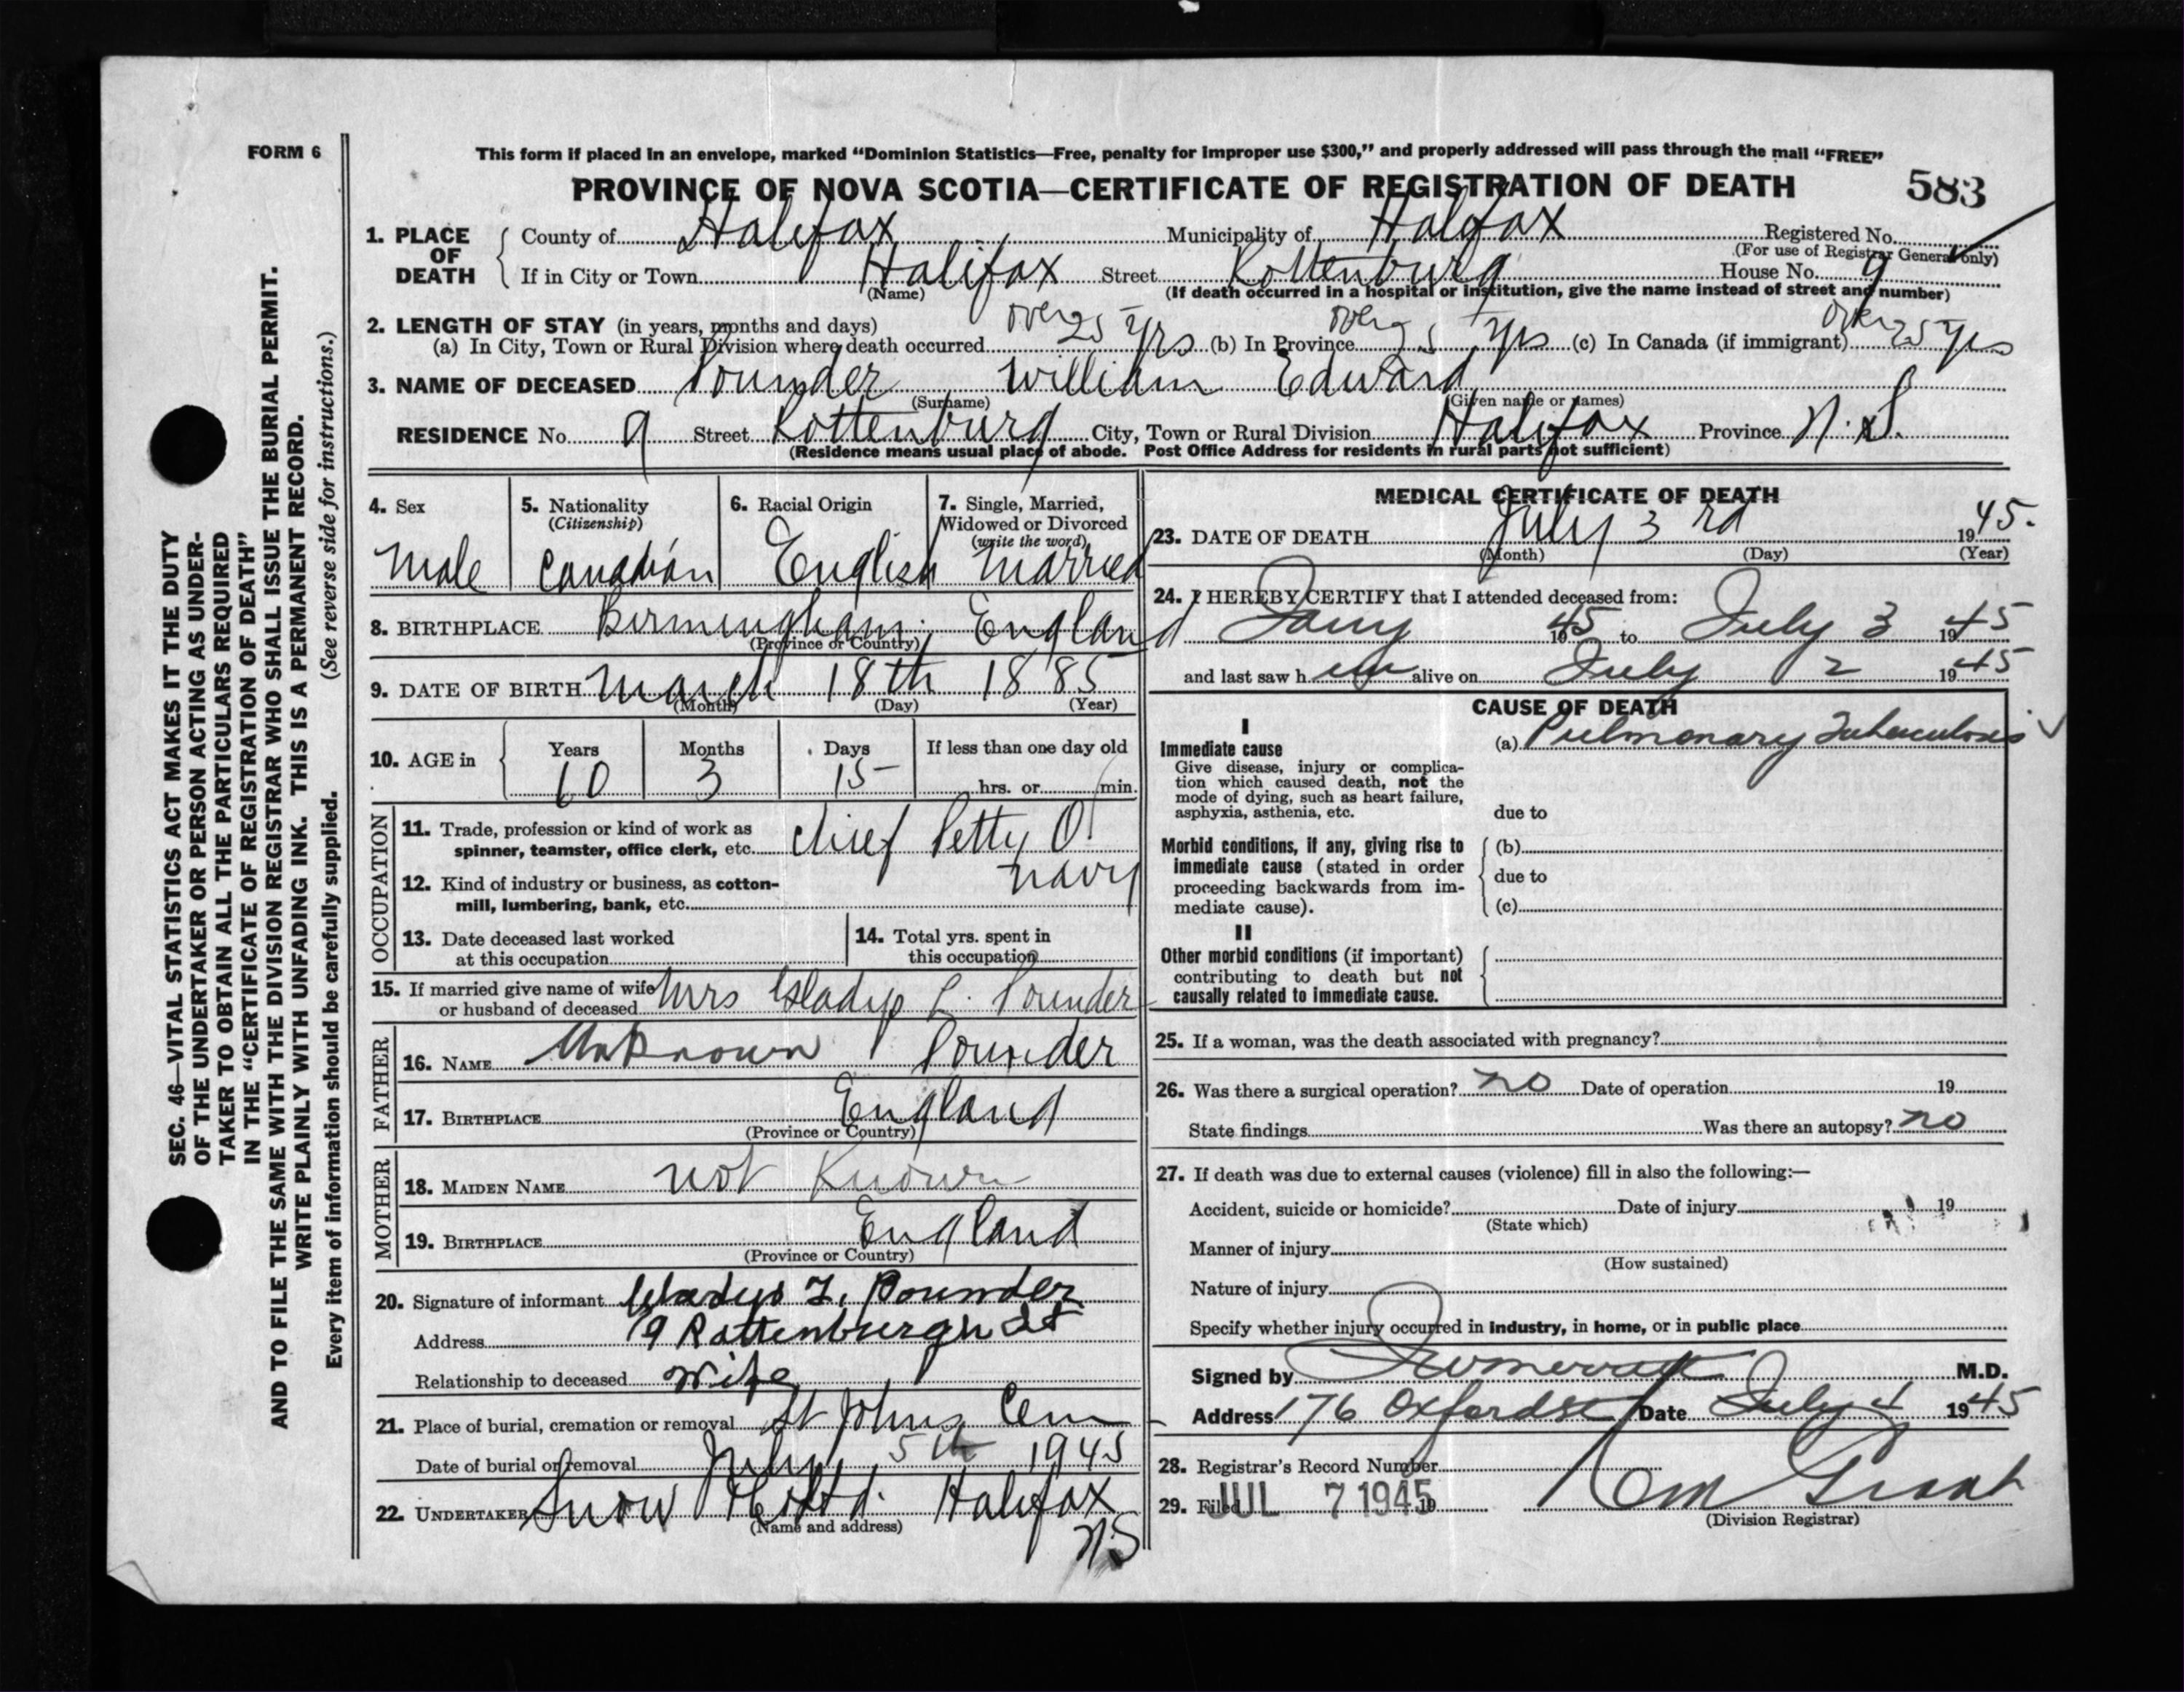 FORM 6
This form if placed in an envelope, marked “Dominion Statistics—Free, penalty for improper use $300,” and properly addressed will pass through the mail “FREE”
PROVINCE OF NOVA SCOTIA—CERTIFICATE OF REGISTRATION OF DEATH 583
1. PLACE OF DEATH County of Halifax Municipality of Halifax Registered No.
(For use of Registrar General only)
If in City or Town Halifax Street Rottenburg House No. 9
(Name) (If death occurred in a hospital or institution, give the name instead of street and number)
2. LENGTH OF STAY (in years, months and days)
(a) In City, Town or Rural Division where death occurred over 25 yrs (b) In Province over 25 yrs (c) In Canada (if immigrant) over 25 yrs
3. NAME OF DECEASED Pounder William Edward
(Surname) (Given name or names)
RESIDENCE No. 9 Street Rottenburg City, Town or Rural Division Halifax Province N.S.
(Residence means usual place of abode. Post Office Address for residents in rural parts not sufficient)
4. Sex
Male
5. Nationality
(Citizenship)
Canadian
6. Racial Origin
English
7. Single, Married,
Widowed or Divorced
(write the word)
Married
8. BIRTHPLACE Birmingham, England
(Province or Country)
9. DATE OF BIRTH March 18th 1885
(Month) (Day) (Year)
10. AGE in Years Months Days If less than one day old
60 3 15 hrs. or min.
OCCUPATION
11. Trade, profession or kind of work as
spinner, teamster, office clerk, etc. Chief Petty O.
12. Kind of industry or business, as cotton-
mill, lumbering, bank, etc. Navy
13. Date deceased last worked
at this occupation
14. Total yrs. spent in
this occupation
15. If married give name of wife
or husband of deceased Mrs Gladys L. Pounder
FATHER
16. NAME Unknown Pounder
17. BIRTHPLACE England
(Province or Country)
MOTHER
18. MAIDEN NAME not Known
19. BIRTHPLACE England
(Province or Country)
20. Signature of informant Gladys L. Pounder
Address 9 Rottenburgh St
Relationship to deceased Wife
21. Place of burial, cremation or removal St Johns Cem
Date of burial or removal July 5th 1945
22. UNDERTAKER Snow Co Ltd. Halifax
(Name and address)
NS
MEDICAL CERTIFICATE OF DEATH
23. DATE OF DEATH July 3rd 1945.
(Month) (Day) (Year)
24. I HEREBY CERTIFY that I attended deceased from:
Jany 1945 to July 3 1945
and last saw him alive on July 2 1945
CAUSE OF DEATH
I
Immediate cause
Give disease, injury or complica-
tion which caused death, not the
mode of dying, such as heart failure,
asphyxia, asthenia, etc.
(a) Pulmonary Tuberculosis
due to
Morbid conditions, if any, giving rise to
immediate cause (stated in order
proceeding backwards from im-
mediate cause).
(b)
due to
(c)
II
Other morbid conditions (if important)
contributing to death but not
causally related to immediate cause.
25. If a woman, was the death associated with pregnancy?
26. Was there a surgical operation? no Date of operation 19
State findings Was there an autopsy? no
27. If death was due to external causes (violence) fill in also the following:—
Accident, suicide or homicide? Date of injury 19
(State which)
Manner of injury
(How sustained)
Nature of injury
Specify whether injury occurred in industry, in home, or in public place
Signed by M.D.
Address 176 Oxford St Date July 4 1945
28. Registrar's Record Number
29. Filed JUL 7 1945 19 Grant
(Division Registrar)
SEC. 46—VITAL STATISTICS ACT MAKES IT THE DUTY
OF THE UNDERTAKER OR PERSON ACTING AS UNDER-
TAKER TO OBTAIN ALL THE PARTICULARS REQUIRED
IN THE “CERTIFICATE OF REGISTRATION OF DEATH”
AND TO FILE THE SAME WITH THE DIVISION REGISTRAR WHO SHALL ISSUE THE BURIAL PERMIT.
WRITE PLAINLY WITH UNFADING INK. THIS IS A PERMANENT RECORD.
Every item of information should be carefully supplied. (See reverse side for instructions.)